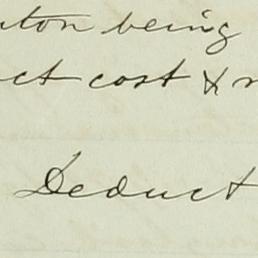 uton being
ct cost &
Deduct